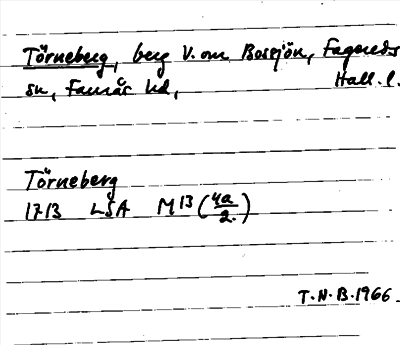 Törneberg, berg V. om Bossjön, Fagereds
sn, Faurås hd, Hall. l.
Törneberg
1713 LSA M13 (4a/2)
T.N.B. 1966